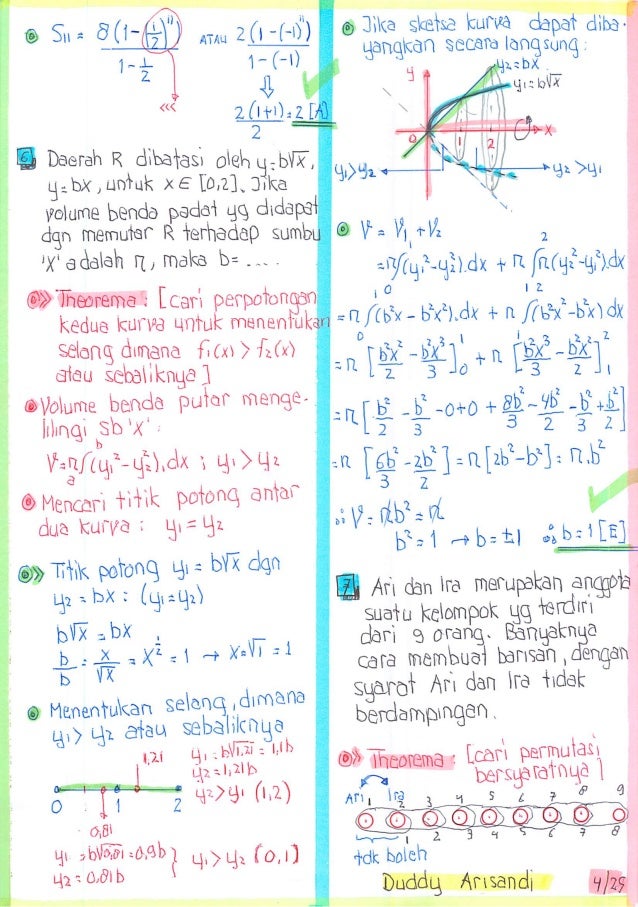 S₁₁ = 8(1-(½)¹¹) / 1-½ ATAU 2(1-(-1)¹¹) / 1-(-1)
<<<
⇓
2(1+1)/2 = 2 [A]
6 Daerah R dibatasi oleh y=b√x,
y=bx, untuk x∈[0,2]. Jika
volume benda padat yg didapat
dgn memutar R terhadap sumbu
'X' adalah π, maka b= ....
Theorema : [cari perpotongan
kedua kurva untuk menentukan
selang dimana f₁(x) > f₂(x)
atau sebaliknya]
Volume benda putar menge-
lilingi sb 'x' :
V=π ₐ∫ᵇ(y₁²-y₂²).dx ; y₁>y₂
Mencari titik potong antar
dua kurva : y₁=y₂
Titik potong y₁ = b√x dgn
y₂ = bx : (y₁=y₂)
b√x = bx
b/b = x/√x = x^½ = 1 → x=√1 = 1
Menentukan selang, dimana
y₁>y₂ atau sebaliknya
1,21 y₁ = b√1,21 = 1,1b
y₂=1,21b
y₂>y₁ (1,2)
0 1 2
0,81
y₁ = b√0,81 = 0,9b } y₁>y₂ (0,1)
y₂ = 0,81b
Jika sketsa kurva dapat diba-
yangkan secara langsung :
y y₂=bx
y₁=b√x
0 1 2 x
y₁>y₂ y₂>y₁
V = V₁ + V₂
=π ₀∫¹(y₁²-y₂²).dx + π ₁∫²(y₂²-y₁²).dx
=π ₀∫¹(b²x - b²x²).dx + π ₁∫²(b²x²-b²x) dx
=π [b²x²/2 - b²x³/3]₀¹ + π [b²x³/3 - b²x²/2]₁²
=π[b²/2 - b²/3 -0+0 + 8b²/3 - 4b²/2 - b²/3 + b²/2]
=π [6b²/3 - 2b²/2] = π[2b²-b²] = π.b²
∴ V = πb² = π
b²=1 → b=±1 ∴ b=1 [E]
7 Ari dan Ira merupakan anggota
suatu kelompok yg terdiri
dari 9 orang. Banyaknya
cara membuat barisan, dengan
syarat Ari dan Ira tidak
berdampingan.
Theorema : [cari permutasi
bersyaratnya]
Ari Ira
1 2 3 4 5 6 7 8 9
1 2 3 4 5 6 7 8
tdk boleh
Duddy Arisandi 4/29